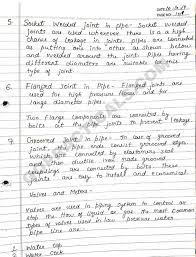 5. Socket Welded Joint in pipe - Socket Welded
joints are used wherever there is a high
chance of leakage in joints. pipes are connected
as putting one into other as shown below
and welded around the joint. Pipe having
different diameters are suitable
type of joint.
6. Flanged Joint in Pipe - Flanged joints are
used for high pressure flows and for
large diameter pipes.
Two flange components are connected by
bolts at the
7. Grooved Joint in pipe - In case of grooved
joint, pipe ends consist grooved edges
which are connected by elastomers seal
and then ductile iron made grooved
couplings are connected by bolts. These
joints are easy to install and economical
Valves and Meters -
Valves are used in piping system to control or
stop the flow of liquid or gas. The most common
types of valves used in low pressure water
pipe line are.
1. Water Cap
2. Water Cock